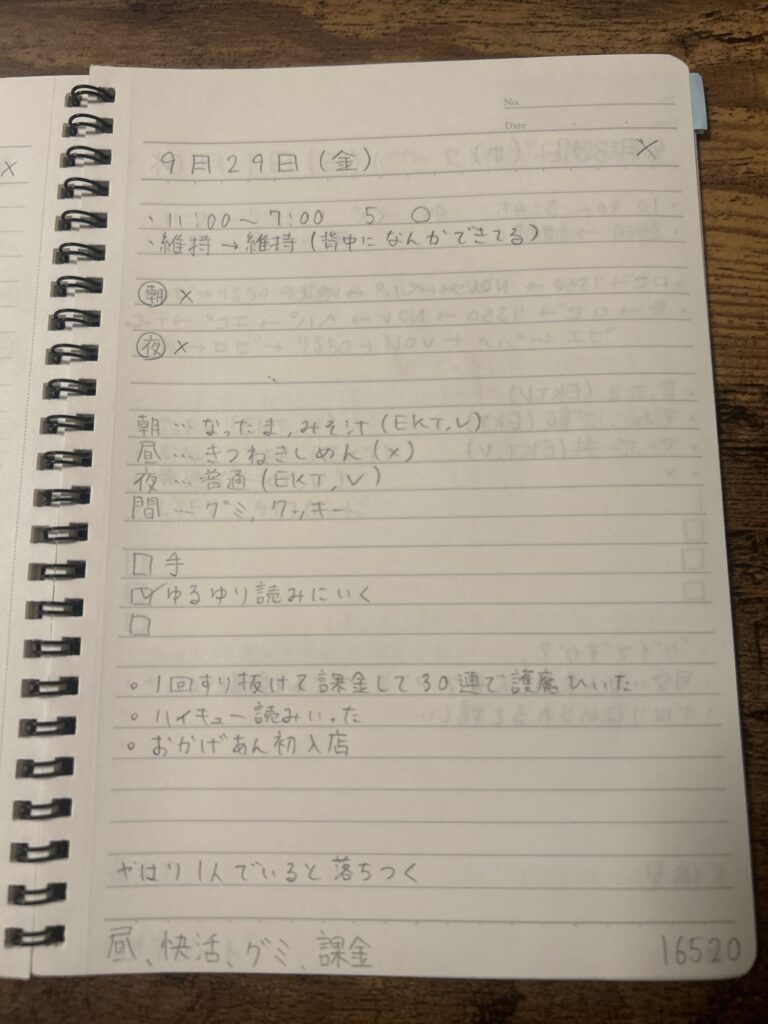 No.
Date
9月29日(金) ×
・11:00〜7:00 5 ○
・維持→維持(背中になんかできてる)
朝 ×
夜 ×
朝…なったま,みそ汁(EKT,V)
昼…きつねきしめん(×)
夜…普通(EKT,V)
間…グミ,クッキー
□ 手
☑ ゆるゆり読みにいく
□
○ 1回すり抜けて課金して30連で護摩ひいた
○ ハイキュー読みいった
○ おかげあん初入店
やはり1人でいると落ちつく
昼、快活、グミ、課金 16520
×